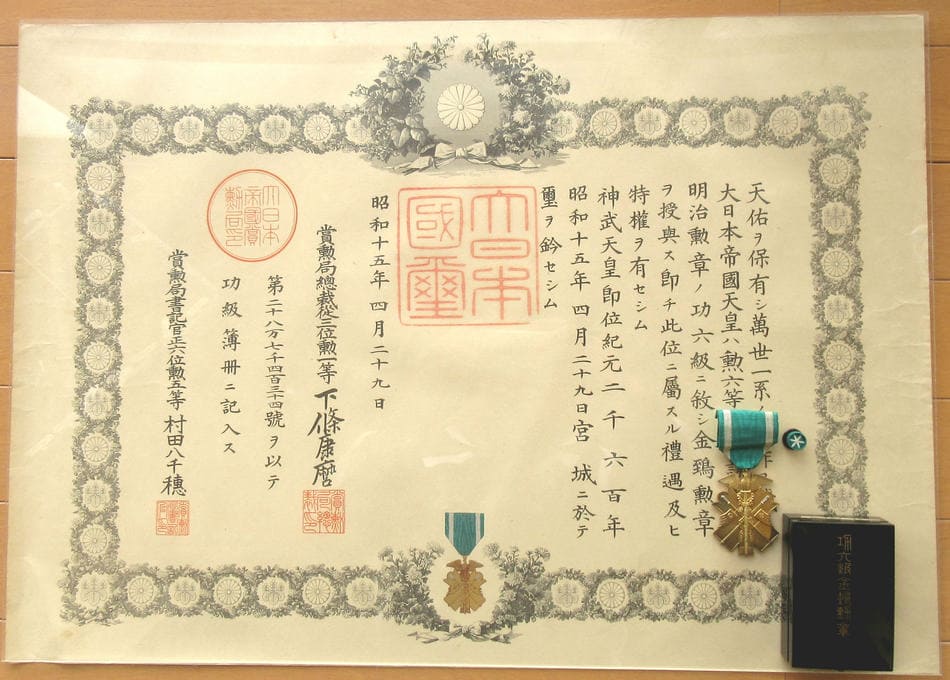 天佑ヲ保有シ萬世一系ノ
大日本帝國天皇ハ勲六等
明治勲章ノ功六級ニ敘シ金鵄勲章
ヲ授與ス卽チ此位ニ屬スル禮遇及ヒ
特權ヲ有セシム
神武天皇卽位紀元二千六百年
昭和十五年四月二十九日宮城ニ於テ
璽ヲ鈐セシム
大日本國璽
昭和十五年四月二十九日
賞勲局總裁從三位勲一等下條康麿
大日本帝國賞勲局印
第二十八万七千四百三十四號ヲ以テ
功級簿冊ニ記入ス
賞勲局書記官正六位勲五等村田八千穗
功六級金鵄勲章